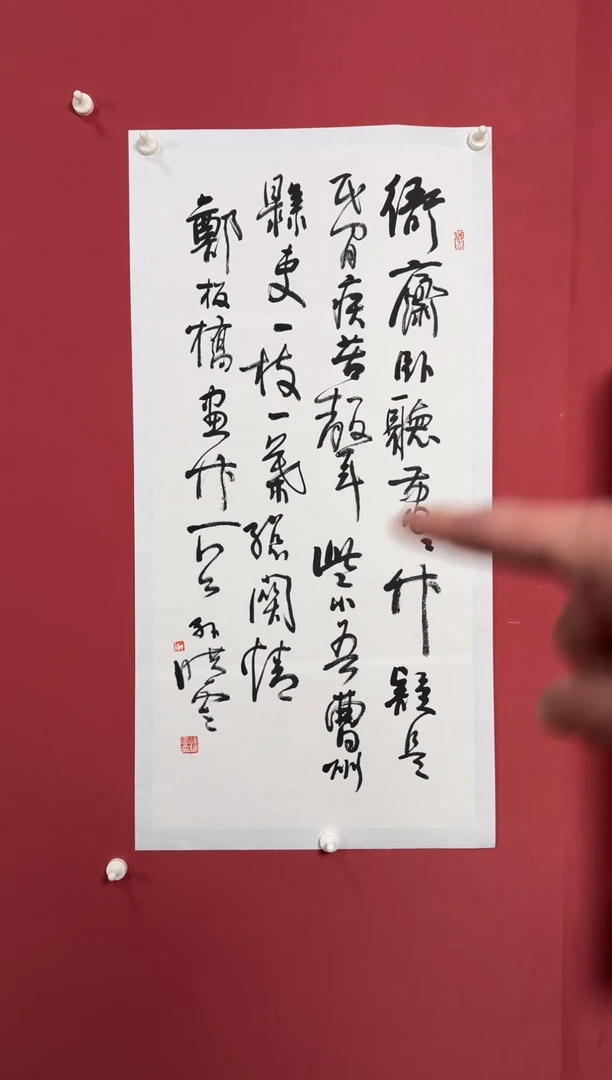 衙齋卧聽蕭〻竹疑是
民間疾苦聲些小吾曹州
縣吏一枝一葉總關情
鄭板橋畫竹
孫曉雲